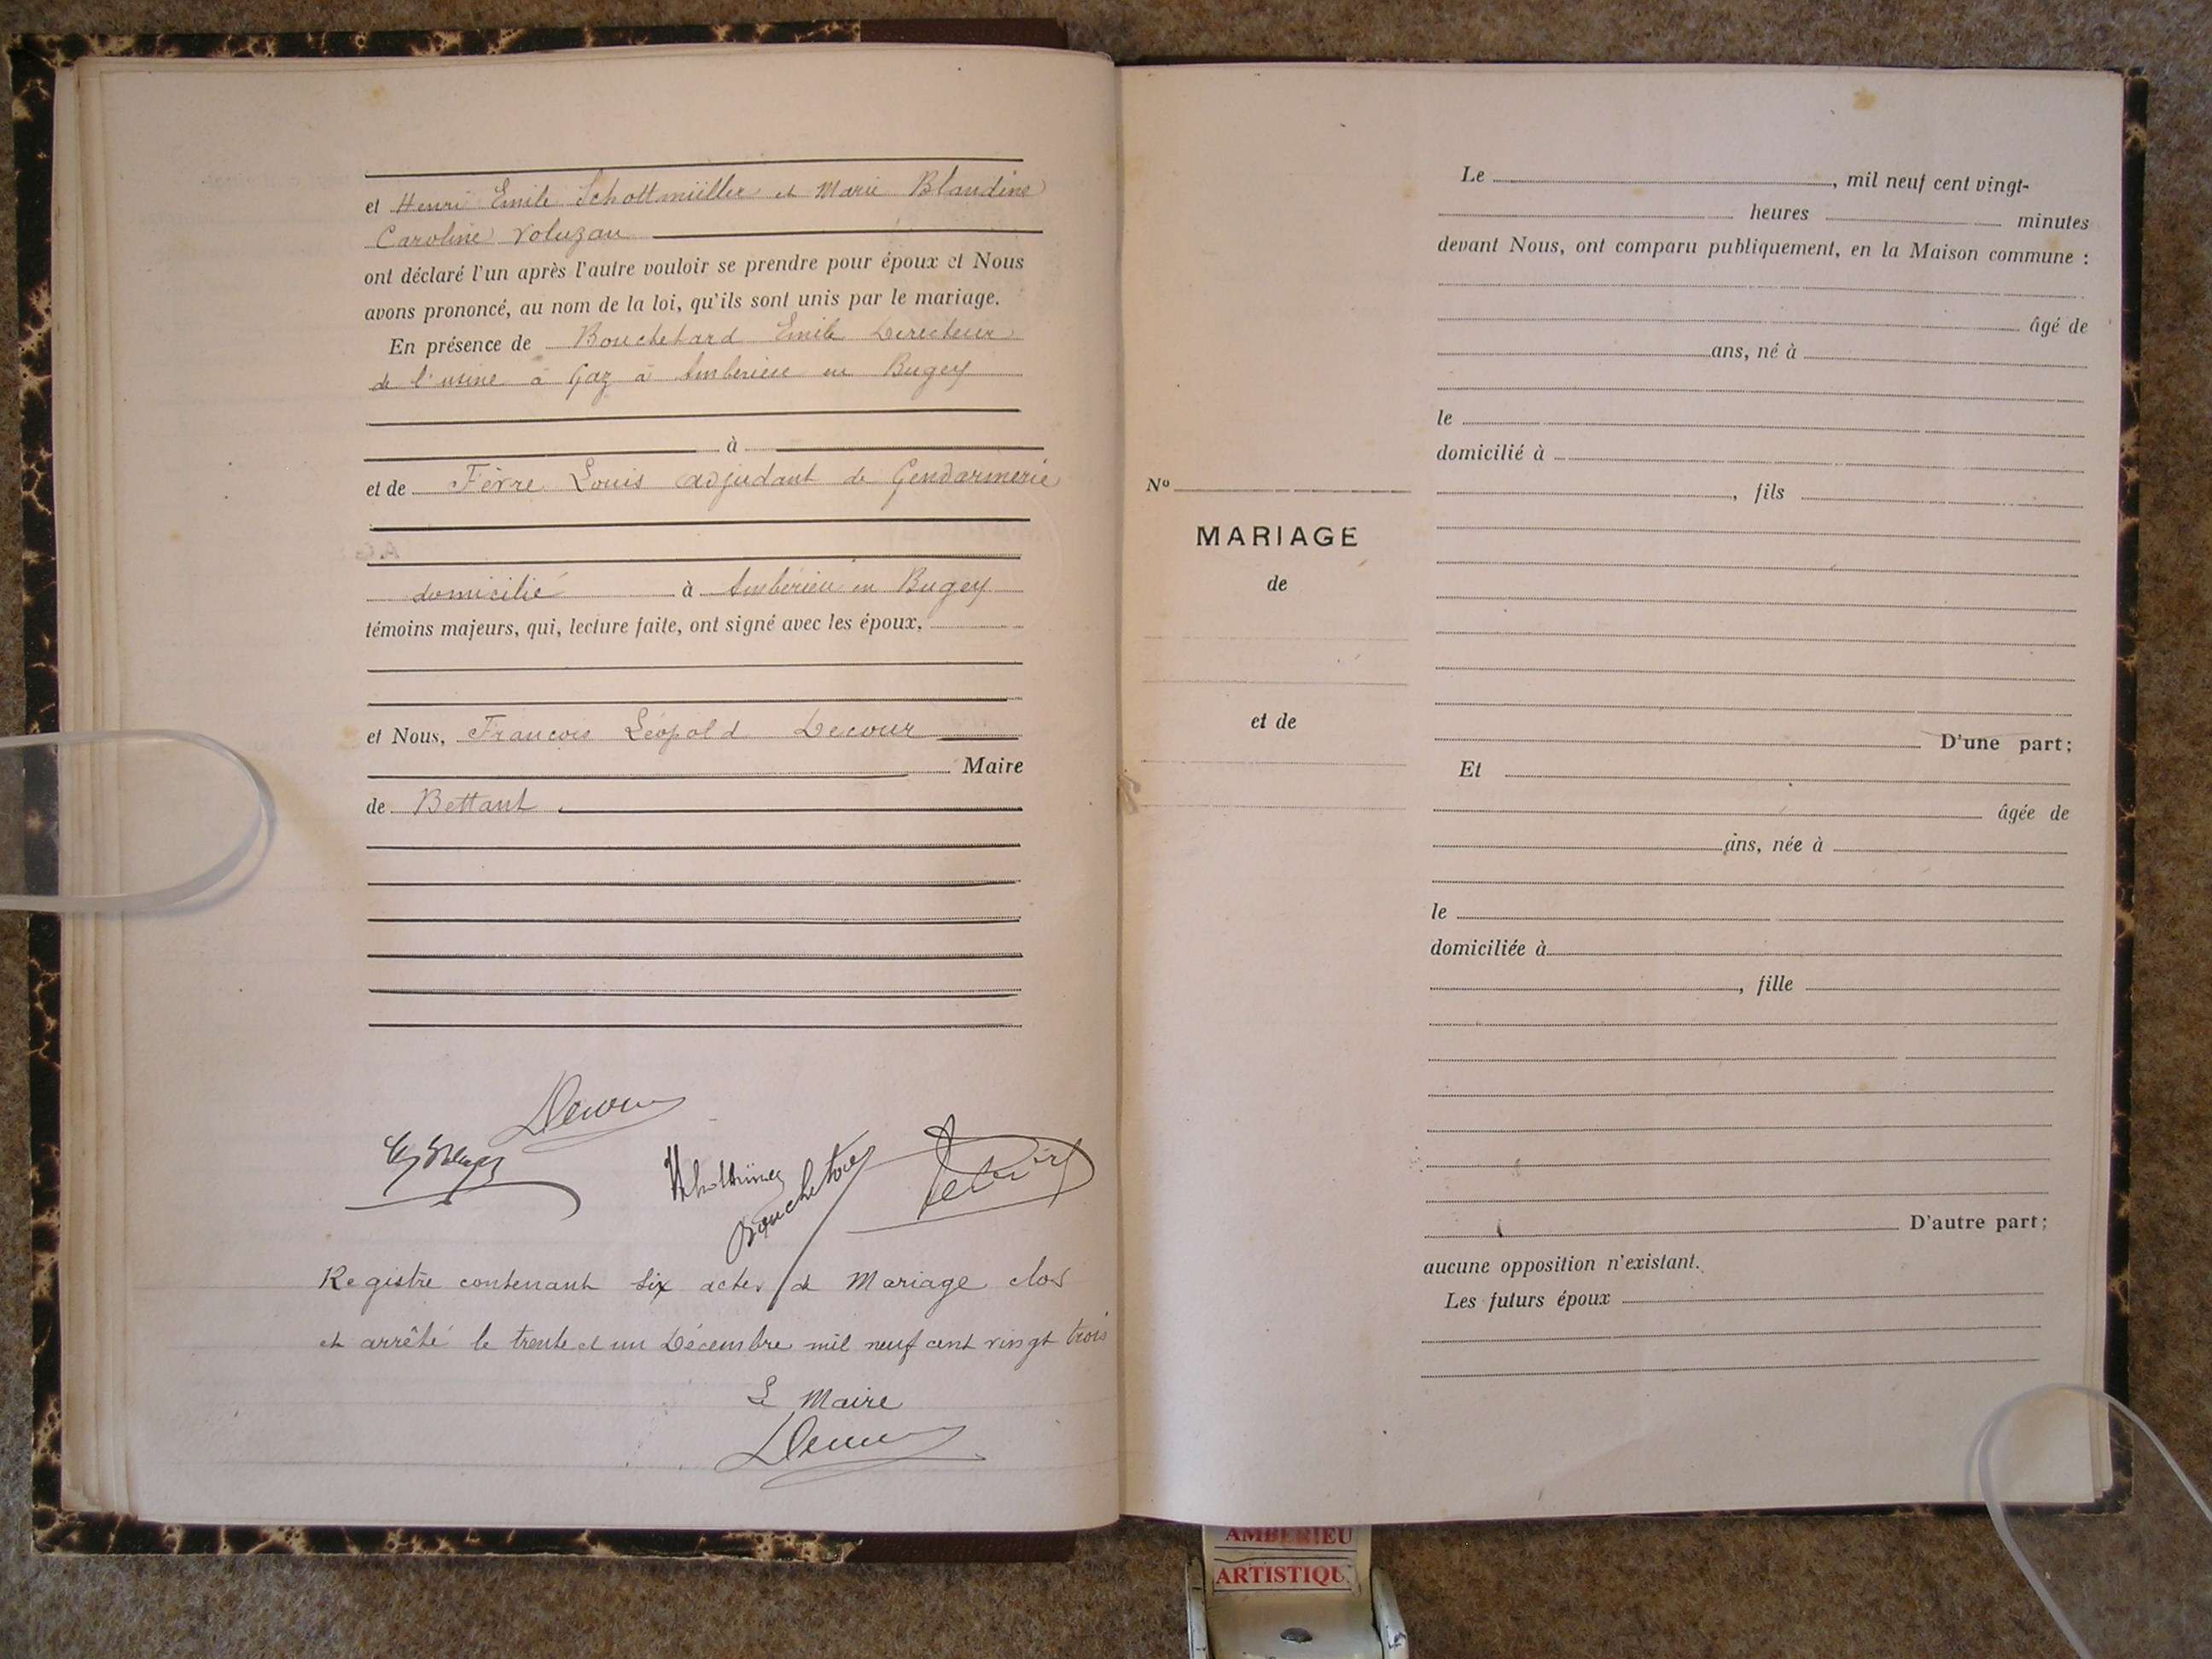 et Henri Emile Schottmüller et Marie Blandine
Caroline Voluzan
ont déclaré l'un après l'autre vouloir se prendre pour époux et Nous
avons prononcé, au nom de la loi, qu'ils sont unis par le mariage.
En présence de Bouchetard Emile Directeur
de l'usine à Gaz à Ambérieu en Bugey
à
et de Fèvre Louis adjudant de Gendarmerie
domicilié à Ambérieu en Bugey
témoins majeurs, qui, lecture faite, ont signé avec les époux.
et Nous, Francois Léopold Decour
Maire
de Bettant
Decour
Schottmüller
Bouchetard
Registre contenant six actes de Mariage clos
et arrêté le trente et un Décembre mil neuf cent vingt trois
Le Maire
Decour
Nº
MARIAGE
de
et de
Le , mil neuf cent vingt-
heures minutes
devant Nous, ont comparu publiquement, en la Maison commune :
âgé de
ans, né à
le
domicilié à
, fils
D'une part;
Et
âgée de
ans, née à
le
domiciliée à
, fille
D'autre part;
aucune opposition n'existant.
Les futurs époux
AMBERIEU
ARTISTIQU